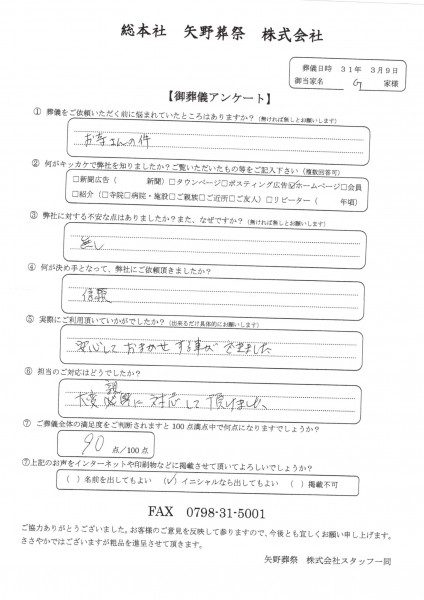 総本社 矢野葬祭 株式会社
葬儀日時 31年 3月9日
御当家名 G 家様
【御葬儀アンケート】
① 葬儀をご依頼いただく前に悩まれていたところはありますか？（無ければ無しとお願いします）
お寺さんの件
② 何がキッカケで弊社を知りましたか？ご覧いただいたもの等をご記入下さい（複数回答可）
□新聞広告（ 新聞）□タウンページ□ポスティング広告☑ホームページ□会員
□紹介（□寺院□病院・施設□ご親族□ご近所□ご友人）□リピーター（ 年頃）
③ 弊社に対する不安な点はありましたか？また、なぜですか？（無ければ無しとお願いします）
無し
④ 何が決め手となって、弊社にご依頼頂きましたか？
信頼
⑤ 実際にご利用頂いていかがでしたか？（出来るだけ具体的にお願いします）
安心しておまかせする事ができました
⑥ 担当のご対応はどうでしたか？
大変親切に対応して頂けました。
⑦ ご葬儀全体の満足度をご判断されますと100点満点中で何点になりますでしょうか？
90 点/100点
⑦上記のお声をインターネットや印刷物などに掲載させて頂いてよろしいでしょうか？
（ ）名前を出してもよい （✓）イニシャルなら出してもよい （ ）掲載不可
FAX 0798-31-5001
ご協力ありがとうございました。お客様のご意見を反映して参りますので、今後とも宜しくお願い申し上げます。
ささやかではございますが粗品を進呈させて頂きます。
矢野葬祭 株式会社スタッフ一同